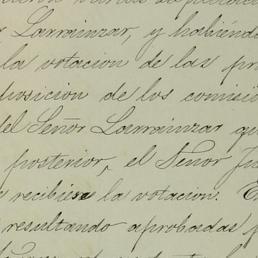 Larrainzar, y habiéndo
la votacion de las pr
posicion de los comisi
del Señor Larrainzar qu
posterior, el Señor Ju
recibiese la votacion. E
resultando aprobadas p